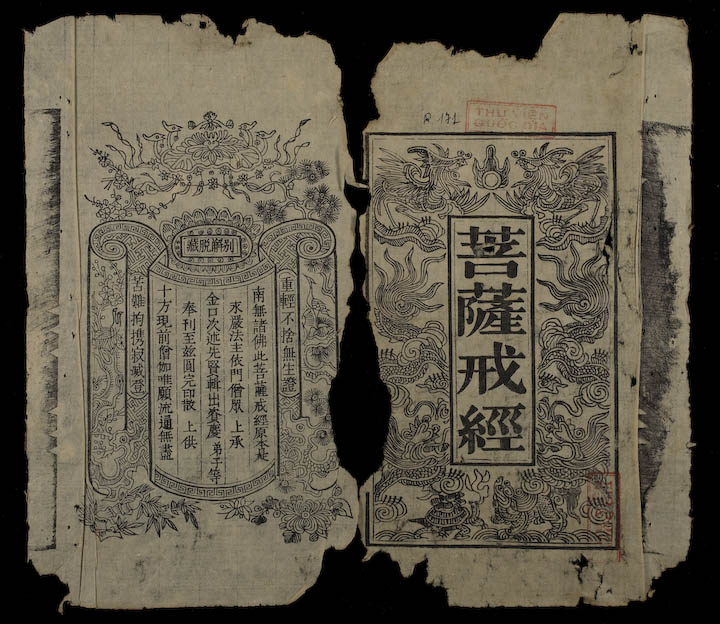 R.171
THƯ VIỆN
QUỐC GIA
菩薩戒經
別解脱藏
重輕不捨無生證
南無諸佛此菩薩戒經原本是
永嚴法主依門僧眾上承
金口次述先賢輯出養慶弟子等
奉刊至茲圓完印散上供
十方現前僧伽唯願流通無盡
苦難拘携寂藏登